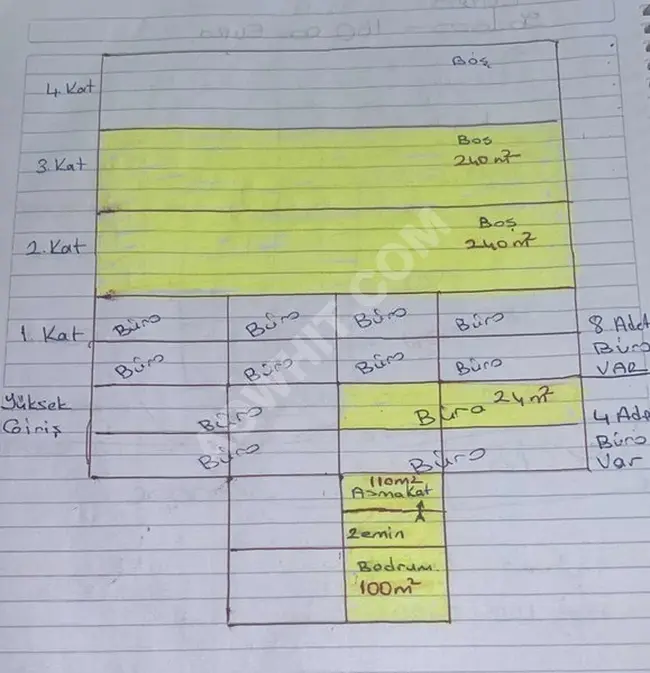 4. Kat
Boş
3. Kat
Bos
240 m²
2. Kat
Boş
240 m²
1. Kat
Büro Büro Büro Büro
8 Adet
Büro Büro Büro Büro
Büro
VAR
Yüksek
Giriş
Büro
Büro 24 m²
4 Ade
Büro
Büro
Büro
Var
110m²
Asma Kat
Zemin
Bodrum
100m²
AÇWHIT.COM